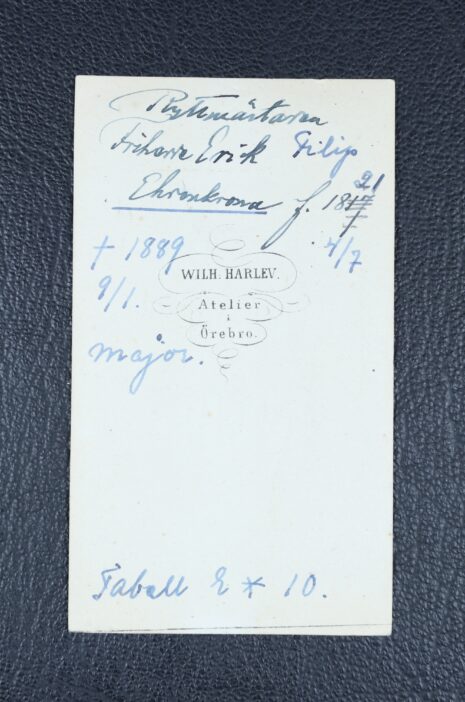 Ryttmästaren
Friherre Erik Filip
Ehrenkrona f. 1821
† 1889 4/7
9/1.
WILH. HARLEV.
Atelier
i
Örebro.
major.
Tabell 2 * 10.